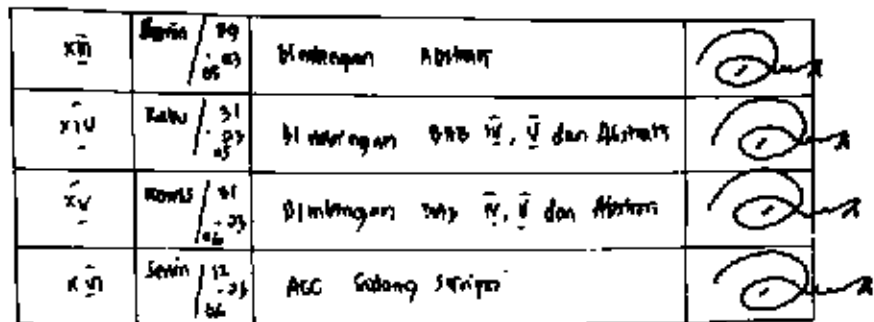 XIII Senin / 29 - 05 - 23 Bimbingan Abstrak
XIV Rabu / 31 - 05 - 23 Bimbingan BAB IV, V dan Abstrak
XV Kamis / 01 - 06 - 23 Bimbingan BAB IV, V dan Abstrak
Senin / 12 - 06 - 23 ACC Sidang Skripsi